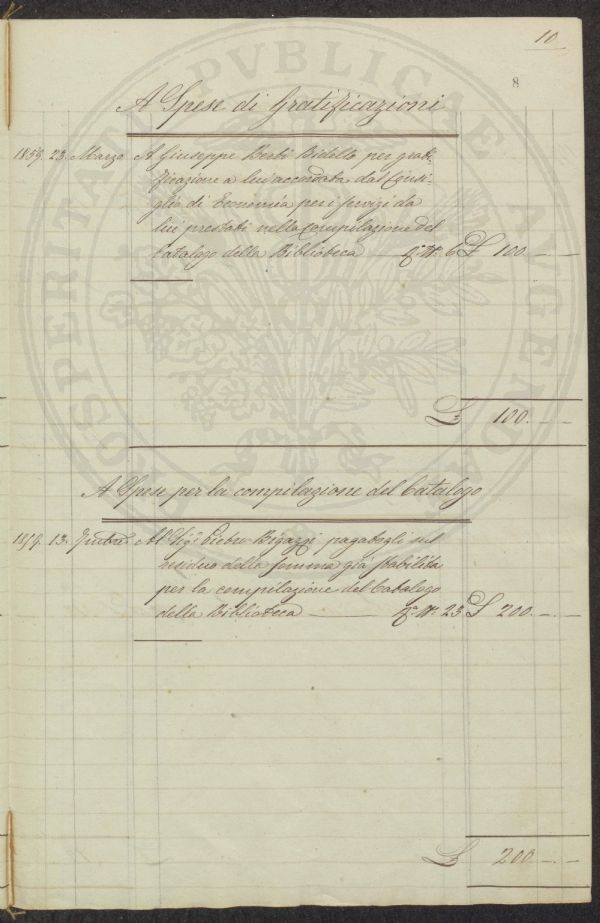 10
8
A Spese di Gratificazioni
1859. 23. Marzo A Giuseppe Berti Bidello per grati-
ficazione a lui accordata dal Consi-
glio di Economia per i servizi da
lui prestati nella compilazione del
Catalogo della Biblioteca — N.° 6 £ 100. — . —
£ 100. — . —
A Spese per la compilazione del Catalogo
1859. 13. Al Sig.r Pietro Bigazzi pagatogli sul
residuo della somma già stabilita
per la compilazione del Catalogo
della Biblioteca — N.° 23 £ 200. — . —
£ 200. — . —
PROSPERITATI PVBLICAE AVGENDAE